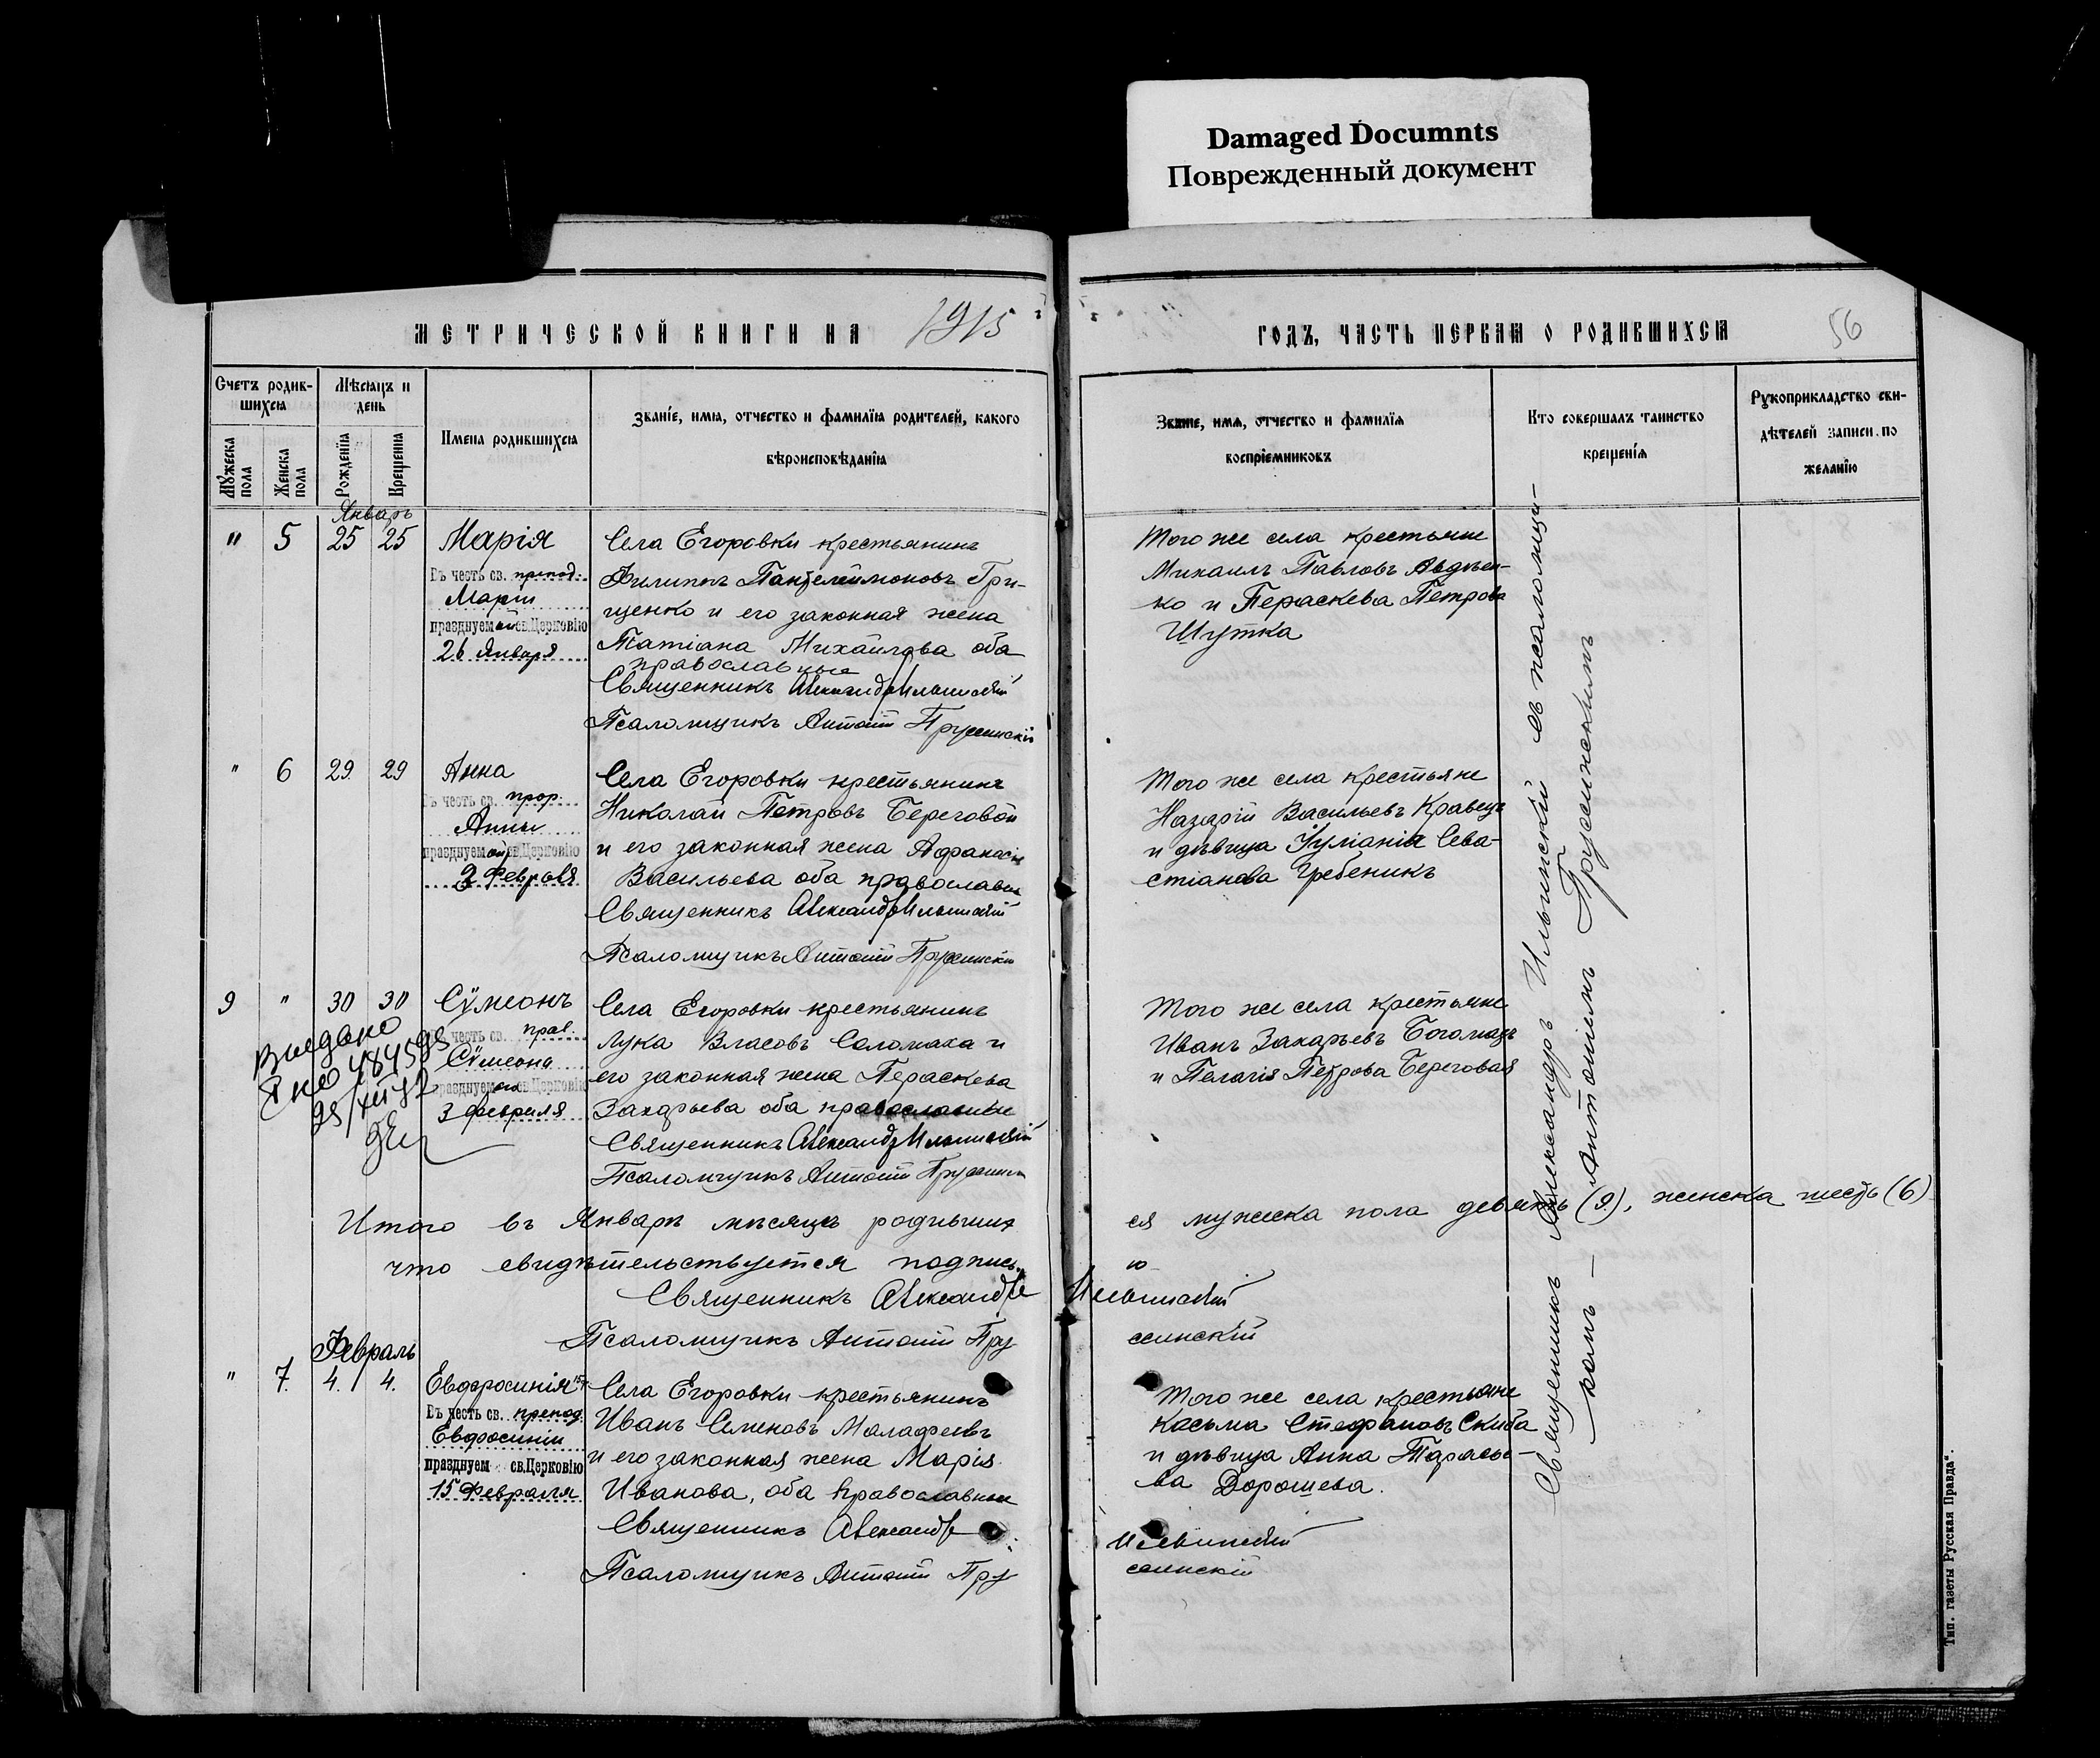 Damaged Documnts
Поврежденный документ
МЕТРИЧЕСКОЙ КНИГИ НА 1915
ГОДЪ, ЧАСТЬ ПЕРВАЯ О РОДИВШИХСЯ
56
Счетъ родив-
шихся
Мужеска
пола
Женска
пола
Мѣсяцъ и
день
Рожденія
Крещенія
Имена родившихся
Званіе, имя, отчество и фамилія родителей, какого
вѣроисповѣданія
Званіе, имя, отчество и фамилія
воспріемниковъ
Кто совершалъ таинство
крещенія
Рукоприкладство сви-
дѣтелей записи по
желанію
Январь
" 5 25 25
Марія
Въ честь св. препод.
Маріи
празднуемой св.Церковію
26 Января
Села Егоровки крестьянинъ
Филиппъ Пантелеимоновъ Гри-
щенко и его законная жена
Татіана Михаилова оба
православные
Священникъ Александръ Ильинскій
Псаломщикъ Антоній Пружинскій
Того же села крестьяне
Михаилъ Павловъ Авдѣен-
ко и Пераскева Петрова
Шутка
" 6 29 29
Анна
Въ честь св. прор.
Анны
празднуемой св.Церковію
3 Февраля
Села Егоровки крестьянинъ
Николай Петровъ Береговой
и его законная жена Афанасія
Васильева оба православные
Священникъ Александръ Ильинскій
Псаломщикъ Антоній Пружинскій
Того же села крестьяне
Назарій Васильевъ Кравецъ
и дѣвица Іуліанія Сева-
стіанова Гребеникъ
9 " 30 30
Сѵмеонъ
Въ честь св. прав.
Сѵмеона
празднуемаго св.Церковію
3 февраля
Выдано
Села Егоровки крестьянинъ
Лука Власовъ Соломаха и
его законная жена Пераскева
Захарьева оба православные
Священникъ Александръ Ильинскій
Псаломщикъ Антоній Пружинскій
Того же села крестьяне
Иванъ Захарьевъ Богомазъ
и Пелагія Петрова Береговая
Итого въ Январѣ мѣсяцѣ родивших
ся мужеска пола девять (9), женска шесть (6)
что свидѣтельствуется подпись
ю
Священникъ Александръ Ильинскій
Псаломщикъ Антоній Пру
жинскій
Февраль
" 7. 4. 4.
Евфросинія
Въ честь св. препод.
Евфросиніи
празднуем св.Церковію
15 Февраля
Села Егоровки крестьянинъ
Иванъ Семеновъ Малафеевъ
и его законная жена Марія
Иванова, оба православные
Священникъ Александръ
Ильинскій
Псаломщикъ Антоній Пру
жинскій
Того же села крестьяне
Косьма Стефановъ Скиба
и дѣвица Анна Тарасье-
ва Дорошева.
Священникъ Александръ Ильинскій съ псаломщи-
комъ — Антоніемъ Пружинскимъ
Тип. газеты Русская Правда".